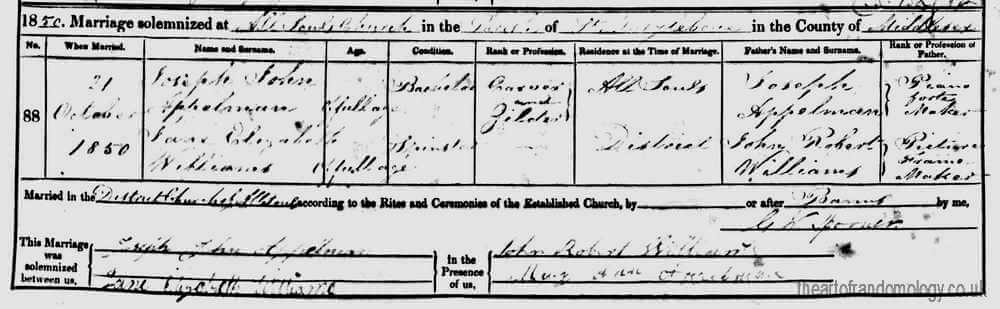 1850. Marriage solemnized at All Souls Church in the Parish of St Marylebone in the County of Middlesex
No. When Married. Name and Surname. Age. Condition. Rank or Profession. Residence at the Time of Marriage. Father's Name and Surname. Rank or Profession of Father.
21 Joseph John Bachelor Carver All Souls Joseph Piano
88 October Appelman Of full age and Gilder Appelman forte Maker
1850 Jane Elizabeth Spinster District John Robert Picture
Williams Of full age Williams Frame Maker
Married in the District Church of All Souls according to the Rites and Ceremonies of the Established Church, by or after Banns by me,
G W
This Marriage was solemnized between us,
Joseph John Appelman
Jane Elizabeth Williams
In the Presence of us,
John Robert Williams
Mary Ann
theartofrandomology.co.uk